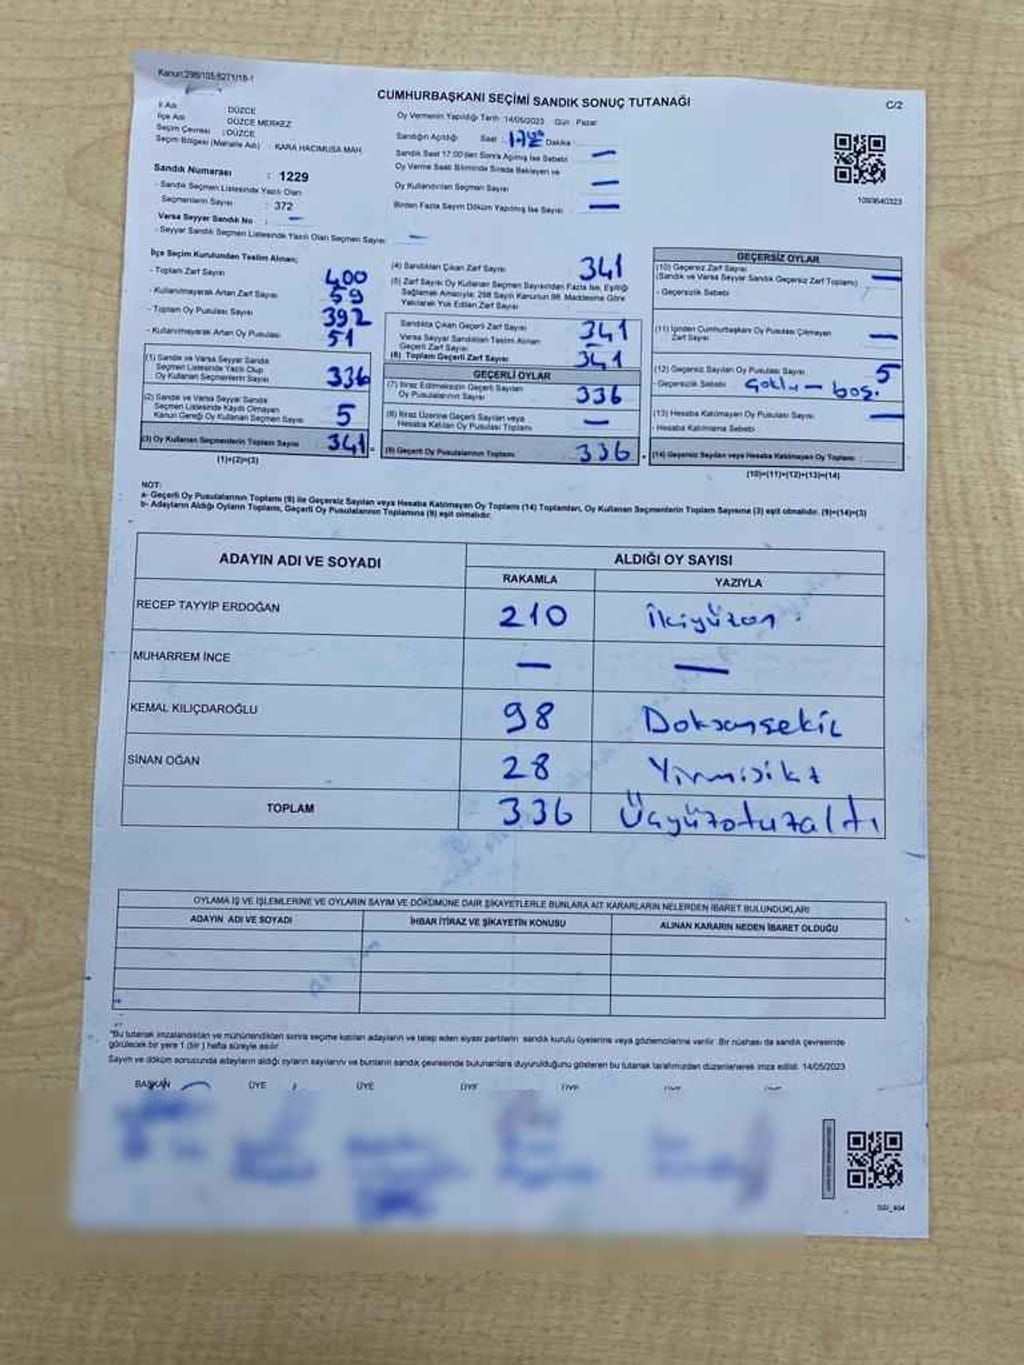 Kanun:298/105;6271/18-1
CUMHURBAŞKANI SEÇİMİ SANDIK SONUÇ TUTANAĞI
C/2
İl Adı : DÜZCE
İlçe Adı : DÜZCE MERKEZ
Seçim Çevresi : DÜZCE
Seçim Bölgesi (Mahalle Adı) : KARA HACIMUSA MAH.
Oy Vermenin Yapıldığı Tarih : 14/05/2023 Gün : Pazar
Sandığın Açıldığı Saat : Dakika :
Sandık Saat 17:00'den Sonra Açılmış İse Sebebi : —
Oy Verme Saati Bitiminde Sırada Bekleyen ve
Oy Kullandırılan Seçmen Sayısı : —
Birden Fazla Sayım Döküm Yapılmış İse Sayısı : —
1093640323
Sandık Numarası : 1229
- Sandık Seçmen Listesinde Yazılı Olan
Seçmenlerin Sayısı : 372
Varsa Seyyar Sandık No : —
- Seyyar Sandık Seçmen Listesinde Yazılı Olan Seçmen Sayısı : —
İlçe Seçim Kurulundan Teslim Alınan;
- Toplam Zarf Sayısı 400
- Kullanılmayarak Artan Zarf Sayısı 59
- Toplam Oy Pusulası Sayısı 392
- Kullanılmayarak Artan Oy Pusulası 51
(1) Sandık ve Varsa Seyyar Sandık
Seçmen Listesinde Yazılı Olup
Oy Kullanan Seçmenlerin Sayısı 336
(2) Sandık ve Varsa Seyyar Sandık
Seçmen Listesinde Kaydı Olmayan
Kanun Gereği Oy Kullanan Seçmen Sayısı 5
(3) Oy Kullanan Seçmenlerin Toplam Sayısı 341 =
(1)+(2)=(3)
(4) Sandıktan Çıkan Zarf Sayısı 341
(5) Zarf Sayısı Oy Kullanan Seçmen Sayısından Fazla İse, Eşitliği
Sağlamak Amacıyla; 298 Sayılı Kanunun 98. Maddesine Göre
Yakılarak Yok Edilen Zarf Sayısı
Sandıkta Çıkan Geçerli Zarf Sayısı 341
Varsa Seyyar Sandıktan Teslim Alınan
Geçerli Zarf Sayısı —
(6) Toplam Geçerli Zarf Sayısı 341
GEÇERLİ OYLAR
(7) İtiraz Edilmeksizin Geçerli Sayılan
Oy Pusulalarının Sayısı 336
(8) İtiraz Üzerine Geçerli Sayılan veya
Hesaba Katılan Oy Pusulası Toplamı —
(9) Geçerli Oy Pusulalarının Toplamı 336 +
GEÇERSİZ OYLAR
(10) Geçersiz Zarf Sayısı
(Sandık ve Varsa Seyyar Sandık Geçersiz Zarf Toplamı) —
- Geçersizlik Sebebi :
(11) İçinden Cumhurbaşkanı Oy Pusulası Çıkmayan
Zarf Sayısı —
(12) Geçersiz Sayılan Oy Pusulası Sayısı 5
- Geçersizlik Sebebi : Çoklu — boş.
(13) Hesaba Katılmayan Oy Pusulası Sayısı —
- Hesaba Katılmama Sebebi :
(14) Geçersiz Sayılan veya Hesaba Katılmayan Oy Toplamı :
(10)+(11)+(12)+(13)=(14)
NOT:
a- Geçerli Oy Pusulalarının Toplamı (9) ile Geçersiz Sayılan veya Hesaba Katılmayan Oy Toplamı (14) Toplamları, Oy Kullanan Seçmenlerin Toplam Sayısına (3) eşit olmalıdır. (9)+(14)=(3)
b- Adayların Aldığı Oyların Toplamı, Geçerli Oy Pusulalarının Toplamına (9) eşit olmalıdır.
ADAYIN ADI VE SOYADI ALDIĞI OY SAYISI
RAKAMLA YAZIYLA
RECEP TAYYİP ERDOĞAN 210 İkiyüzon
MUHARREM İNCE — —
KEMAL KILIÇDAROĞLU 98 Doksansekiz
SİNAN OĞAN 28
TOPLAM 336 Üçyüzotuzaltı
OYLAMA İŞ VE İŞLEMLERİNE VE OYLARIN SAYIM VE DÖKÜMÜNE DAİR ŞİKAYETLERLE BUNLARA AİT KARARLARIN NELERDEN İBARET BULUNDUKLARI
ADAYIN ADI VE SOYADI İHBAR İTİRAZ VE ŞİKAYETİN KONUSU ALINAN KARARIN NEDEN İBARET OLDUĞU
*Bu tutanak imzalandıktan ve mühürlendikten sonra seçime katılan adayların ve talep eden siyasi partilerin sandık kurulu üyelerine veya gözlemcilerine verilir. Bir nüshası da sandık çevresinde
görülecek bir yere 1 (bir ) hafta süreyle asılır.
Sayım ve döküm sonucunda adayların aldığı oyların sayılarını ve bunların sandık çevresinde bulunanlara duyurulduğunu gösteren bu tutanak tarafımızdan düzenlenerek imza edildi. 14/05/2023
BAŞKAN ÜYE ÜYE ÜYE ÜYE